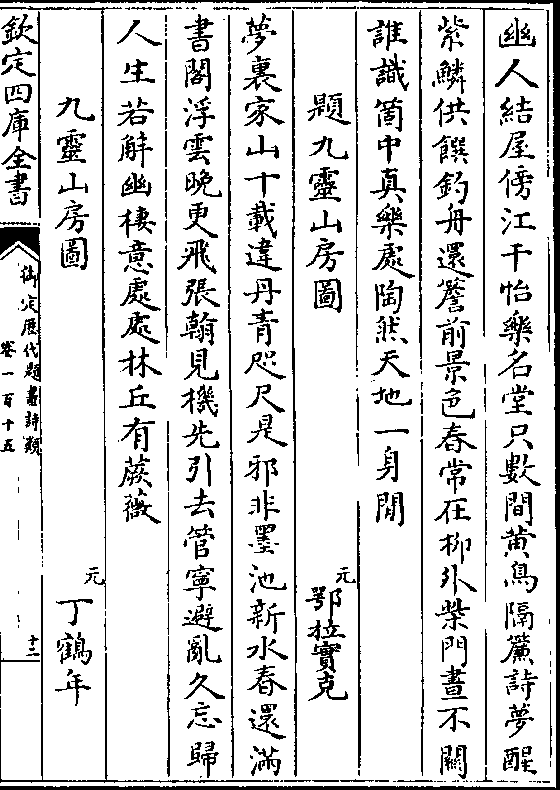 幽人結屋傍江干怡樂名堂只數間黄鳥隔簾詩夢醒
紫鱗供饌釣舟還簷前景色春常在柳外柴門晝不關
誰識箇中真樂處陶然天地一身閒
題九靈山房圖
元
鄂拉實克
夢裏家山十載違丹青咫尺是邪非墨池新水春還滿
書閣浮雲晚更飛張翰見機先引去管寧避亂久忘歸
人生若解幽棲意處處林丘有蕨薇
九靈山房圖
元
丁鶴年
欽定四庫全書
御定歷代題畫詩類
卷一百十五
十二